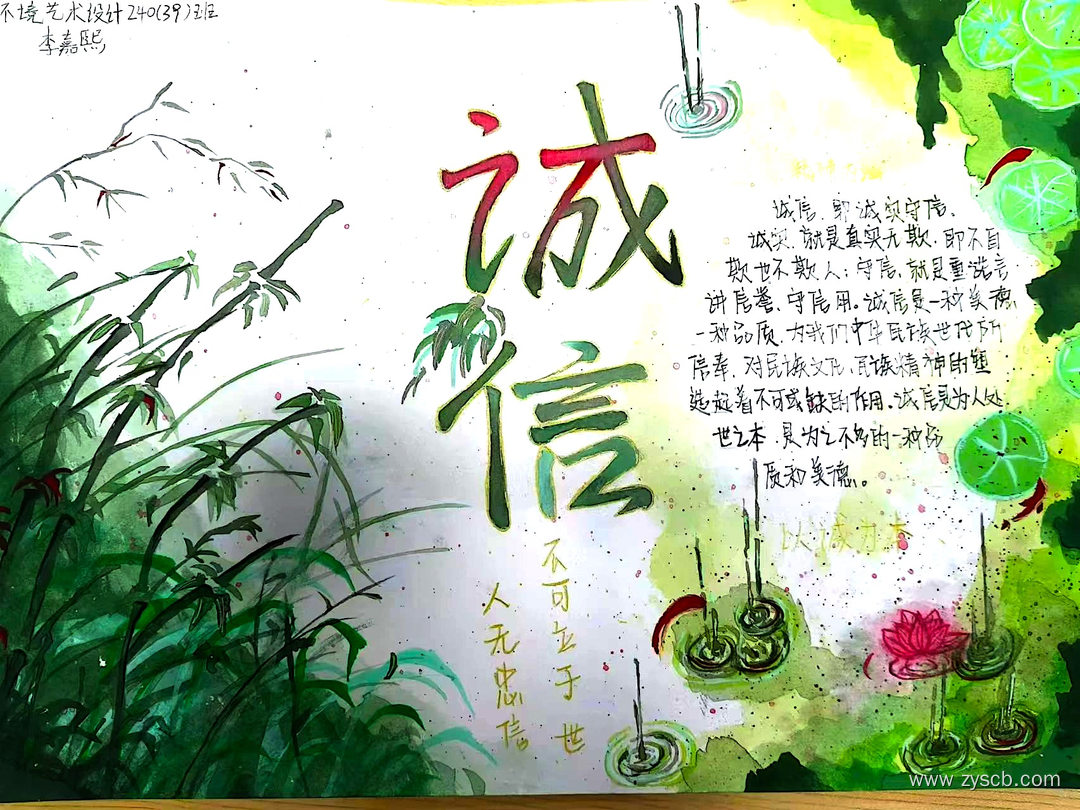 环境艺术设计240(39)班
李嘉熙
诚
信
诚信，即诚实守信，
诚实，就是真实无欺，即不自
欺也不欺人；守信，就是重诺言
讲信誉、守信用。诚信是一种美德
一种品质，为我们中华民族世代所
信奉，对民族文化、民族精神的塑
造起着不可或缺的作用。诚信是为人处
世之本，是为之不多的一种品
质和美德。
以诚为本
人无忠信
不可立于世
www.zyscb.com